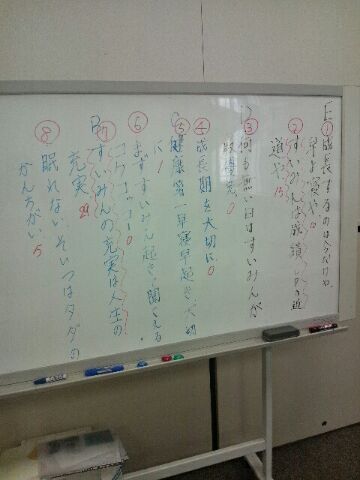 E
① 成長するのは今だけや
早よ寝や 0
② すいみんは成績UPの近
道や 13
D
③ 何も無い日はすいみんが
最優先 0
④ 成長期を大切に 0
C
⑤ 健康第一早寝早起き大切
に 1
⑥ まずすいみん起きて聞こえる
コケコッコー 0
B
⑦ すいみんの充実は人生の
充実 29
⑧ 眠れない、そいつはタダの
かんちがい 5